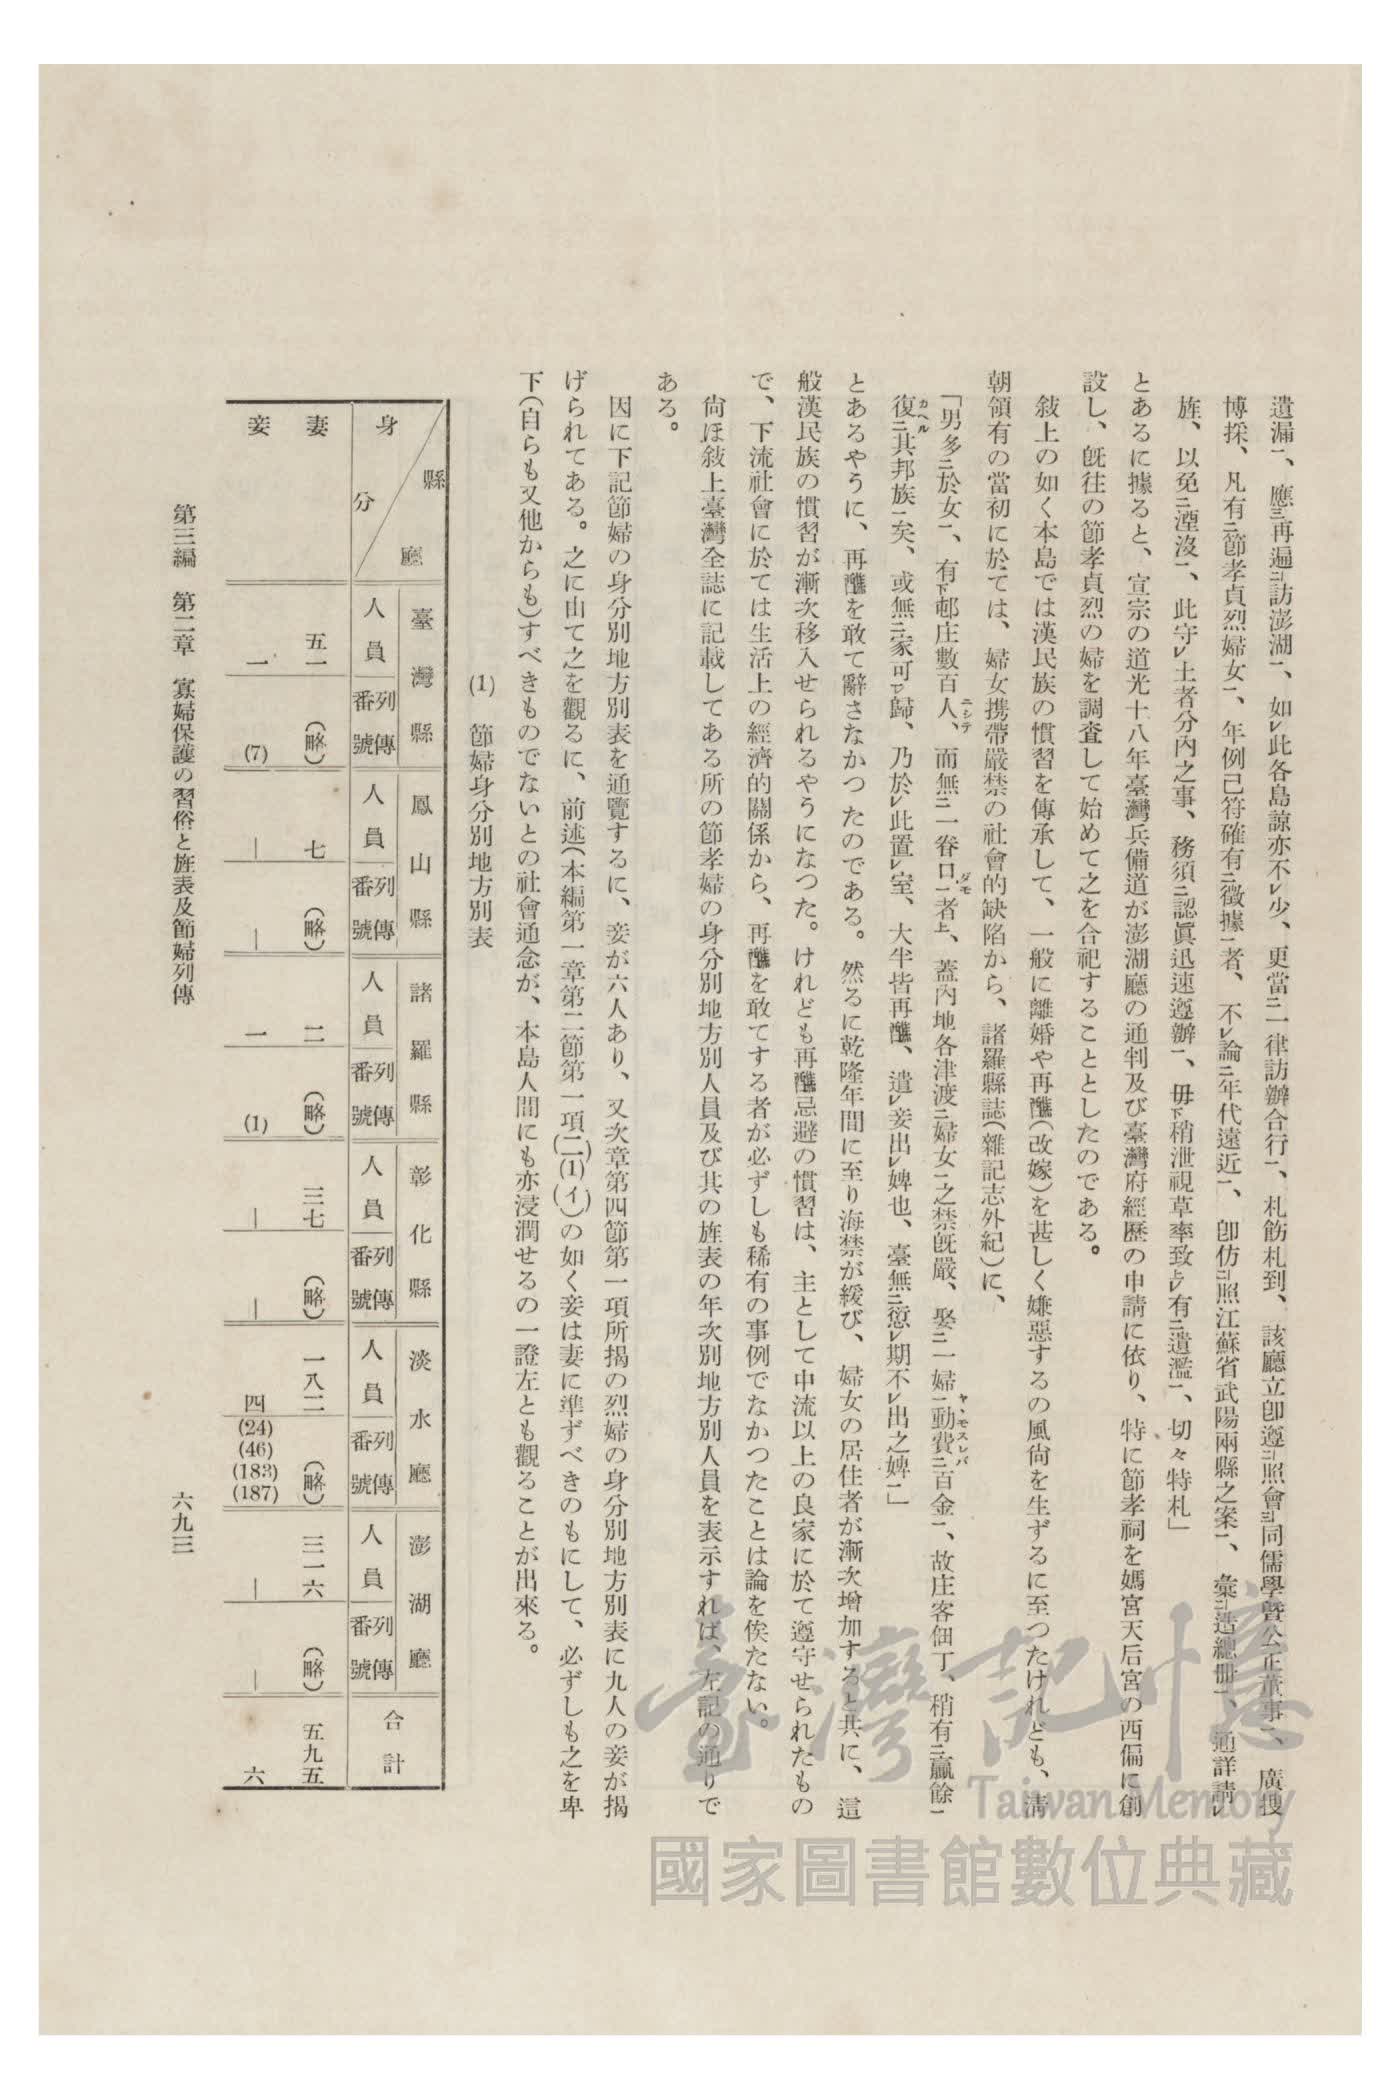 遺漏一、應三再遍二訪澎湖一、如レ此各島諒亦不レ少、更當三一律訪辦合行一、札飭札到、該廳立卽遵二照會三同儒學曁公正董事一、廣搜
博採、凡有二節孝貞烈婦女一、年例已符確有二徵據一者、不レ論二年代遠近一、卽仿二照江蘇省武陽兩縣之案一、彙二造總册一、通詳請レ
旌、以免二湮沒一、此守レ土者分內之事、務須三認眞迅速遵辦一、毋下稍泄視草率致上レ有二遺濫一、切々特札」
とあるに據ると、宣宗の道光十八年臺灣兵備道が澎湖廳の通判及び臺灣府經歷の申請に依り、特に節孝祠を媽宮天后宮の西偏に創
設し、旣往の節孝貞烈の婦を調査して始めて之を合祀することとしたのである。
敍上の如く本島では漢民族の慣習を傳承して、一般に離婚や再醮(改嫁)を甚しく嫌惡するの風尙を生ずるに至つたけれども、淸
朝領有の當初に於ては、婦女携帶嚴禁の社會的缺陷から、諸羅縣誌(雜記志外紀)に、
「男多二於女一、有下邨庄數百人ニシテ、而無二一眷口一者上ダモ、蓋內地各津渡二婦女一之禁旣嚴、娶二一婦一動ヤヽモスレバ費二百金一、故庄客佃丁、稍有二贏餘一
復カヘル二其邦族一矣、或無二家可一レ歸、乃於レ此置レ室、大半皆再醮、遣レ妾出レ婢也、臺無二愆レ期不レ出之婢一」
とあるやうに、再醮を敢て辭さなかつたのである。然るに乾隆年間に至り海禁が緩び、婦女の居住者が漸次增加すると共に、這
般漢民族の慣習が漸次移入せられるやうになつた。けれども再醮忌避の慣習は、主として中流以上の良家に於て遵守せられたもの
で、下流社會に於ては生活上の經濟的關係から、再醮を敢てする者が必ずしも稀有の事例でなかつたことは論を俟たない。
尙ほ敍上臺灣全誌に記載してある所の節孝婦の身分別地方別人員及び其の旌表の年次別地方別人員を表示すれば、左記の通りで
ある。
因に下記節婦の身分別地方別表を通覽するに、妾が六人あり、又次章第四節第一項所揭の烈婦の身分別地方別表に九人の妾が揭
げられてある。之に由て之を觀るに、前述(本編第一章第二節第一項(二)(1)(イ))の如く妾は妻に準ずべきのもにして、必ずしも之を卑
下(自らも又他からも)すべきものでないとの社會通念が、本島人間にも亦浸潤せるの一證左とも觀ることが出來る。
(1) 節婦身分別地方別表
縣廳 身分 臺灣縣 鳳山縣 諸羅縣 彰化縣 淡水廳 澎湖廳 合計
人員 列傳番號 人員 列傳番號 人員 列傳番號 人員 列傳番號 人員 列傳番號 人員 列傳番號
妻 五一 (略) 七 (略) 二 (略) 三七 (略) 一八二 (略) 三一六 (略) 五九五
妾 一 (7) ― ― 一 (1) ― ― 四 (24) (46) (183) (187) ― ― 六
第三編 第二章 寡婦保護の習俗と旌表及節婦列傳 六九三
臺灣記憶
Taiwan Memory
國家圖書館數位典藏